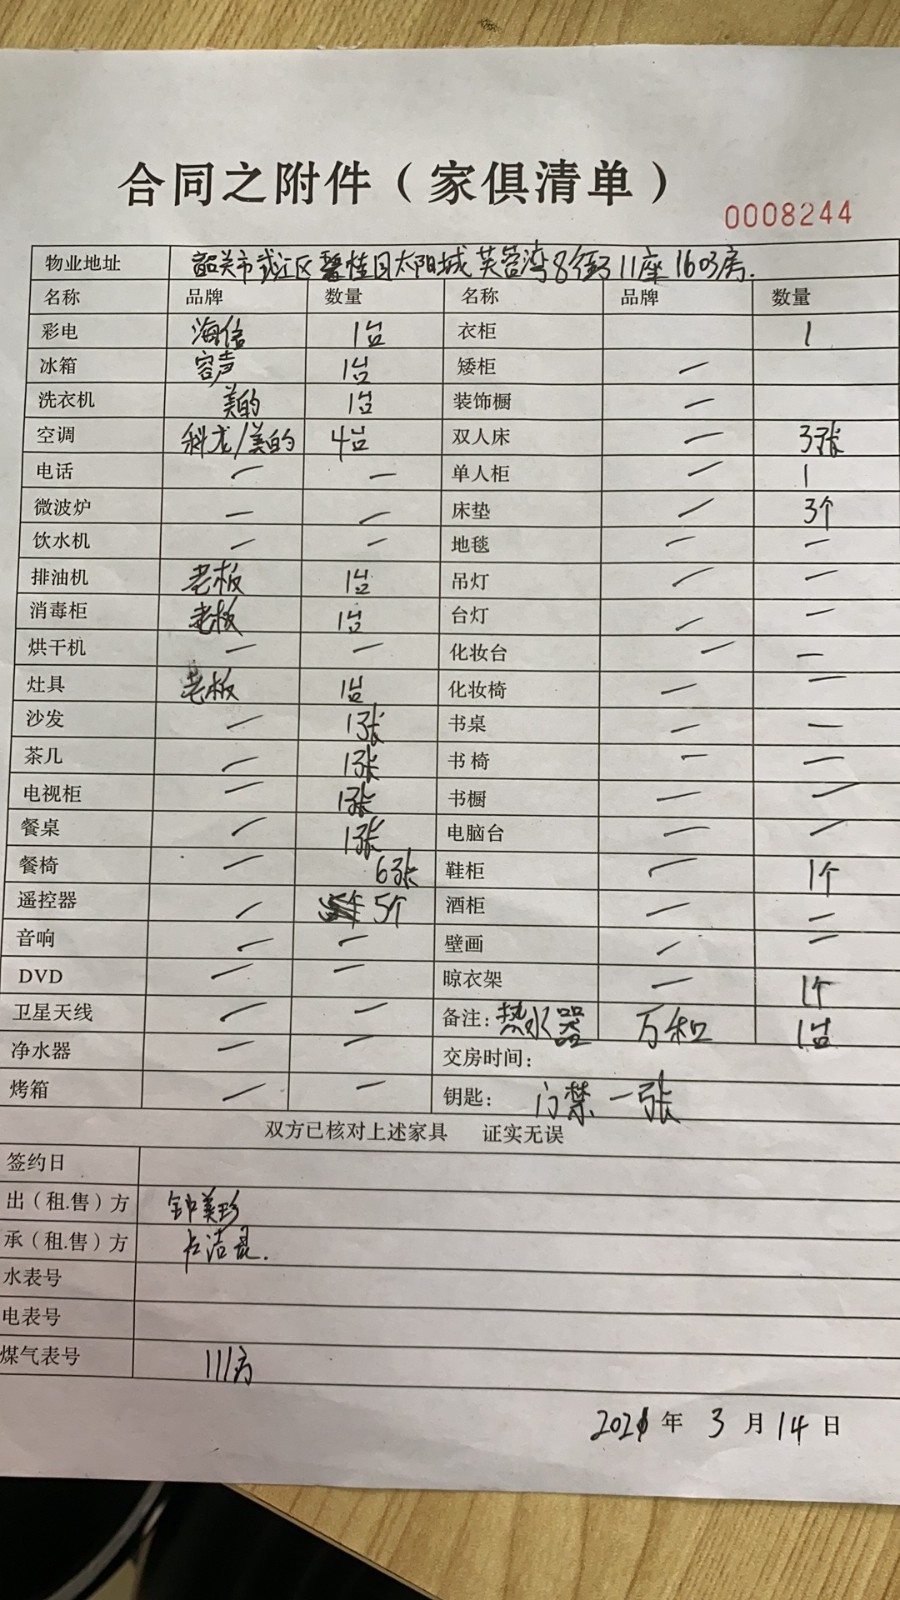 合同之附件（家俱清单）
0008244
物业地址 韶关市武江区碧桂园太阳城芙蓉湾8街11座1603房.
名称 品牌 数量 名称 品牌 数量
彩电 海信 1台 衣柜 1
冰箱 容声 1台 矮柜 —
洗衣机 美的 1台 装饰橱 —
空调 科龙/美的 4台 双人床 — 3张
电话 — — 单人柜 — 1
微波炉 — — 床垫 — 3个
饮水机 — — 地毯 — —
排油机 老板 1台 吊灯 — —
消毒柜 老板 1台 台灯 — —
烘干机 — — 化妆台 — —
灶具 老板 1台 化妆椅 — —
沙发 — 1张 书桌 — —
茶几 — 1张 书椅 — —
电视柜 — 1张 书橱 — —
餐桌 — 1张 电脑台 — —
餐椅 — 6张 鞋柜 — 1个
遥控器 — 5个 酒柜 — —
音响 — — 壁画 — —
DVD — — 晾衣架 — 1个
卫星天线 — — 备注：热水器 万和 1台
净水器 — — 交房时间：
烤箱 — — 钥匙： 门禁一张
双方已核对上述家具 证实无误
签约日
出（租.售）方 钟美珍
承（租.售）方
水表号
电表号
煤气表号 111方
2021年3月14日